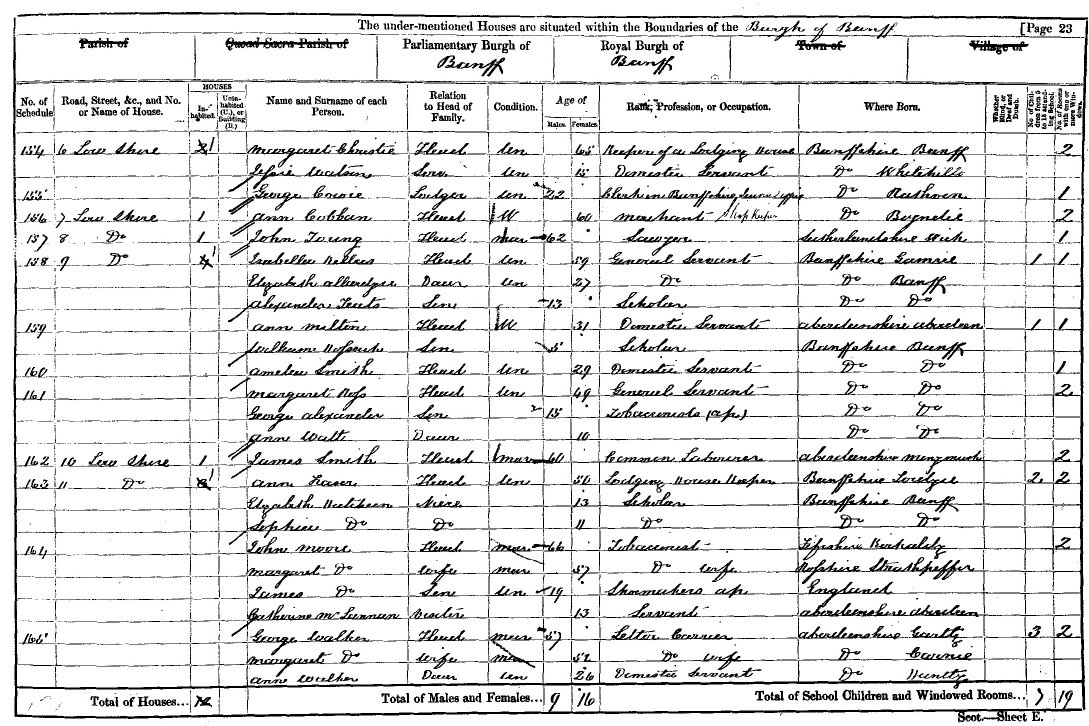 The under-mentioned Houses are situated within the Boundaries of the Burgh of Banff [Page 23
Parish of Quoad Sacra Parish of Parliamentary Burgh of Banff Royal Burgh of Banff Town of Village of
No. of Schedule Road, Street, &c., and No. or Name of House. HOUSES Inhabited. Uninhabited (U.), or Building (B.) Name and Surname of each Person. Relation to Head of Family. Condition. Age of Males. Females. Rank, Profession, or Occupation. Where Born. Whether Blind, or Deaf and Dumb. No. of Children from 5 to 15 attending School. No. of Rooms with one or more Windows.
154 6 Low Shore 1 Margaret Christie Head Un 65 Keeper of a Lodging House Banffshire Banff 2
Jessie Watson Serv Un 15 Domestic Servant Do Whitehills
155 George Cowie Lodger Un 22 Clerk in Banffshire Office Do Rathven 1
156 7 Low Shore 1 Ann Cobban Head W 60 Merchant Shop Keeper Do Boyndie 2
157 8 Do 1 John Young Head Mar 62 Sawyer Sutherlandshire Wick 1
158 9 Do 1 Isabella Head Un 59 General Servant Banffshire Gamrie 1 1
Elizabeth Daur Un 27 Do Do Banff
Alexander Son 13 Scholar Do Do
159 Ann Milton Head W 31 Domestic Servant Aberdeenshire Aberdeen 1 1
William Son 5 Scholar Banffshire Banff
160 Amelia Smith Head Un 29 Domestic Servant Do Do 1
161 Margaret Ross Head Un 49 General Servant Do Do 2
George Alexander Son 15 Tobacconists (ap.) Do Do
Ann Watt Daur 10 Do Do
162 10 Low Shore 1 James Smith Head Mar 60 Common Labourer Aberdeenshire 2
163 11 Do 1 Ann Fraser Head Un 50 Lodging House Keeper Banffshire 2 2
Elizabeth Hutcheon Niece 13 Scholar Banffshire Banff
Sophia Do Do 11 Do Do Do
164 John Moore Head Mar 66 Tobacconist Fifeshire Kirkcaldy 2
Margaret Do Wife Mar 57 Do Wife Rossshire Strathpeffer
James Do Son Un 19 Shoemakers ap England
Catherine McLennan Visitor 13 Servant Aberdeenshire Aberdeen
165 George Walker Head Mar 57 Letter Carrier Aberdeenshire Gartly 3 2
Margaret Do Wife Mar 52 Do Wife Do Cairnie
Ann Walker Daur Un 26 Domestic Servant Do Huntly
Total of Houses... Total of Males and Females... 9 16 Total of School Children and Windowed Rooms... 7 19
Scot.—Sheet E.